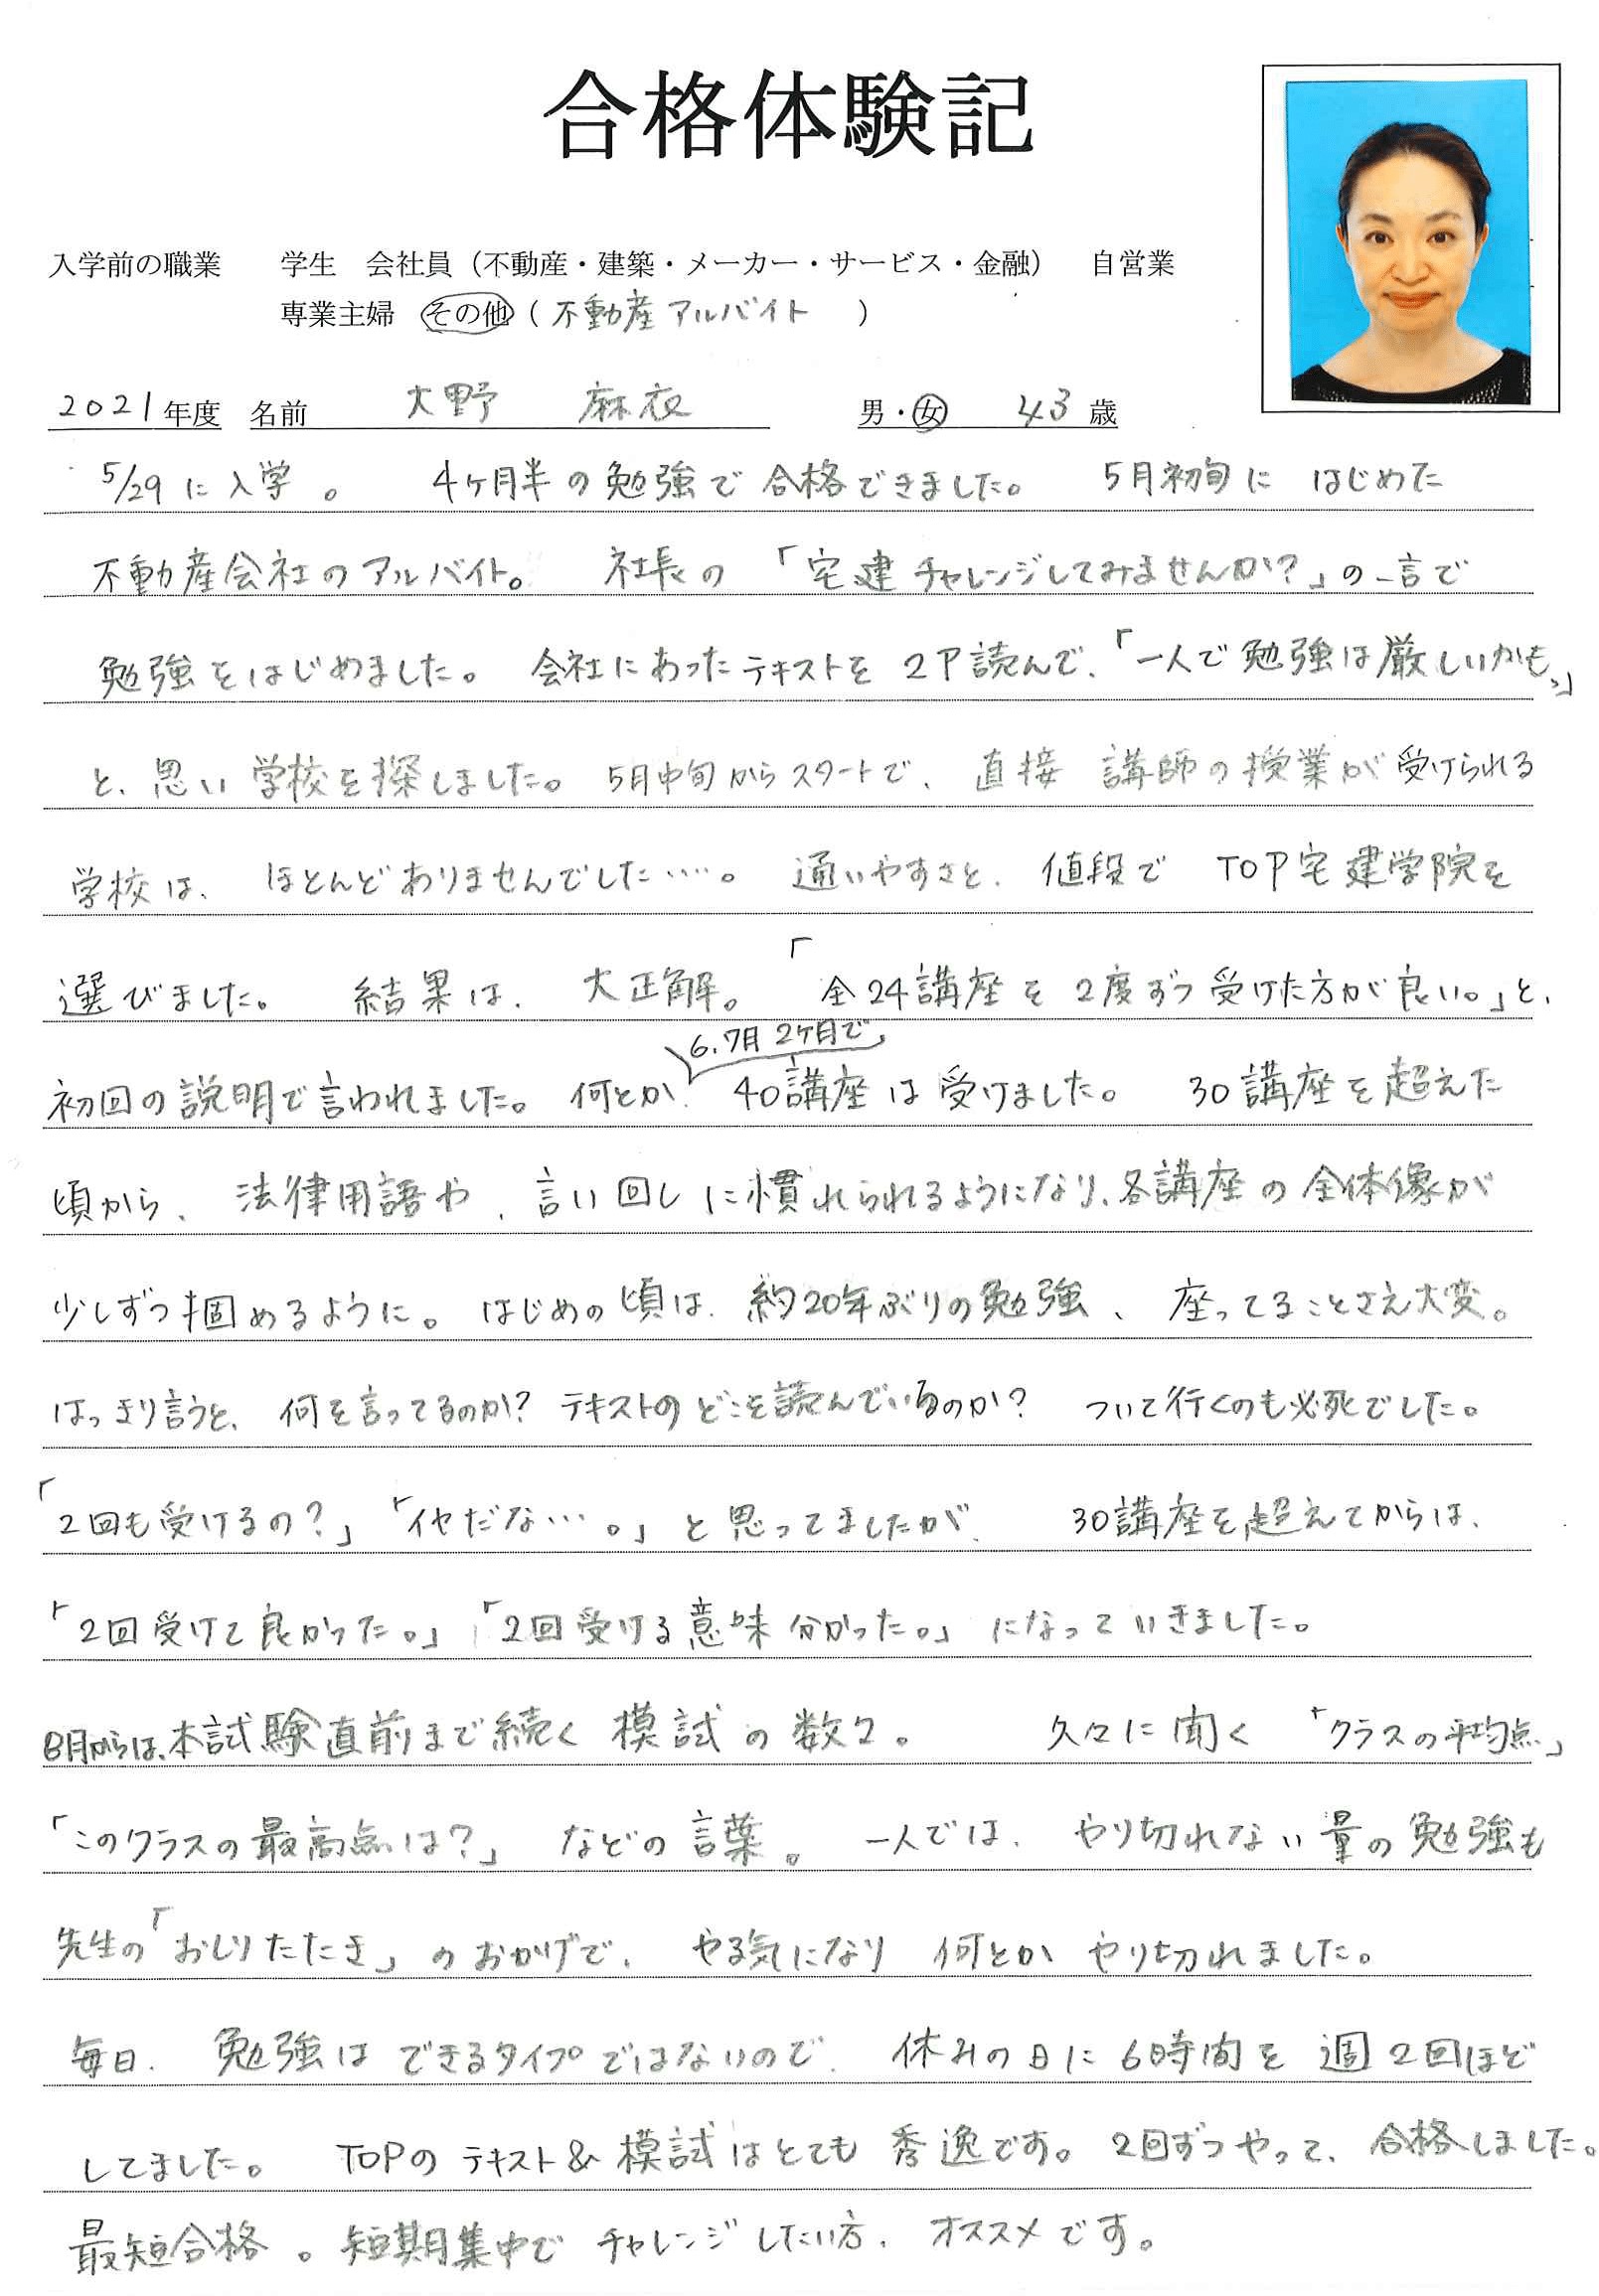 合格体験記
入学前の職業　学生　会社員（不動産・建築・メーカー・サービス・金融）　自営業
専業主婦　その他（不動産アルバイト　）
2021年度　名前　大野　麻衣　男・女　43歳
5/29に入学。　4ヶ月半の勉強で合格できました。　5月初旬に　はじめた
不動産会社のアルバイト。　社長の「宅建チャレンジしてみませんか？」の一言で
勉強をはじめました。　会社にあったテキストを2P読んで、「一人で勉強は厳しいかも、」
と、思い学校を探しました。5月中旬からスタートで、直接　講師の授業が受けられる
学校は、ほとんどありませんでした…。　通いやすさと、値段で　TOP宅建学院を
選びました。　結果は、大正解。「全24講座を2度ずつ受けた方が良い。」と、
6.7月2ヶ月で
初回の説明で言われました。何とか、40講座は受けました。　30講座を超えた
頃から、法律用語や、言い回しに慣れられるようになり、各講座の全体像が
少しずつ掴めるように。はじめの頃は、約20年ぶりの勉強、座ってることさえ大変。
はっきり言うと、何を言ってるのか？テキストのどこを読んでいるのか？　ついて行くのも必死でした。
「2回も受けるの？」「イヤだな…。」と思ってましたが、　30講座を超えてからは、
「2回受けて良かった。」「2回受ける意味分かった。」になっていきました。
8月からは、本試験直前まで続く模試の数々。　久々に聞く「クラスの平均点」
「このクラスの最高点は？」などの言葉。　一人では、やり切れない量の勉強も
先生の「おしりたたき」のおかげで、やる気になり　何とか　やり切れました。
毎日、勉強はできるタイプではないので、休みの日に6時間を週2回ほど
してました。　TOPのテキスト＆模試はとても秀逸です。2回ずつやって、合格しました。
最短合格。短期集中でチャレンジしたい方、オススメです。